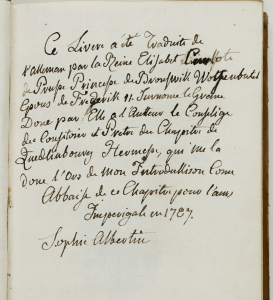 Ce Livere a été Traduite de
l'alleman par la Reine Elisabet
de Prusse Princesse de Bronswik Wolfenbutel
Epous de Frederik II. Surnome le Grand
Done par Elle a l'Auteur le
du Consitoire et Pretre du Chapitre de
Quedlinbourg Hermesse, qui me la
done l'Ors de mon Introduktison Come
Abbaise de ce Chapitre pour l'ans
en 1787.
Sophie Albertin